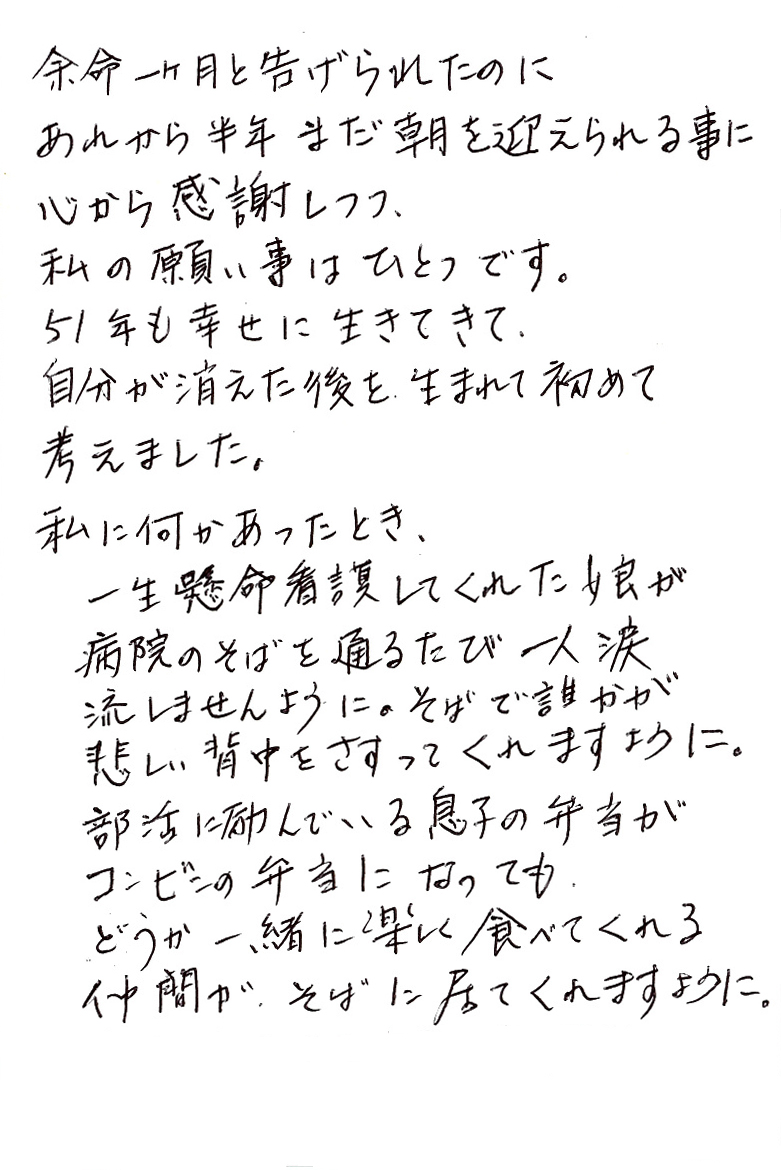 余命一ヶ月と告げられたのに
あれから半年 まだ朝を迎えられる事に
心から感謝しつつ、
私の願い事はひとつです。
51年も幸せに生きてきて、
自分が消えた後を、生まれて初めて
考えました。
私に何かあったとき、
一生懸命看護してくれた娘が
病院のそばを通るたび 一人 涙
流しませんように。そばで誰かが
悲しい背中をさすってくれますように。
部活に励んでいる息子の弁当が
コンビニの弁当になっても、
どうか一緒に楽しく食べてくれる
仲間が、そばに居てくれますように。